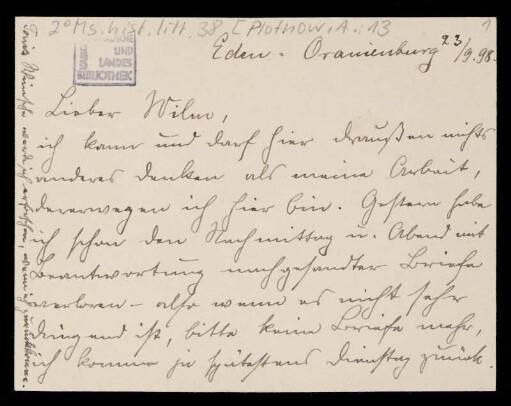 2° Ms. hist. litt. 38 [Plothow, A.: 13
1
UND
LANDES
BIBLIOTHEK
Eden - Oranienburg 23/9. 98.
Lieber Wilm,
ich kann und darf hier draußen nichts
anderes denken als meine Arbeit,
dererwegen ich hier bin. Gestern habe
ich schon den Nachmittag u. Abend mit
Beantwortung nachgesandter Briefe
verloren - also wenn es nicht sehr
dringend ist, bitte keine Briefe mehr,
ich komme ja spätestens Dienstag zurück.
Wünsche werd ich erfüllen, wenn ich zurückkomme.